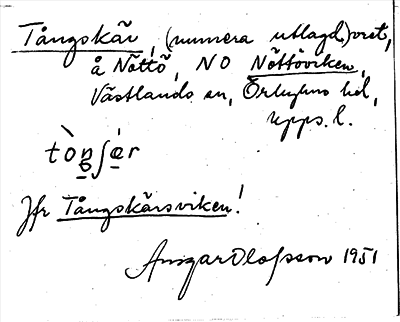 Tångskär, (numera utlagd) vret,
å Nöttö, NO Nöttöviken,
Västlands sn, Örbyhus hd,
Upps. l.
tòŋʃár
Jfr Tångskärsviken!
Ansgar Olofsson 1951